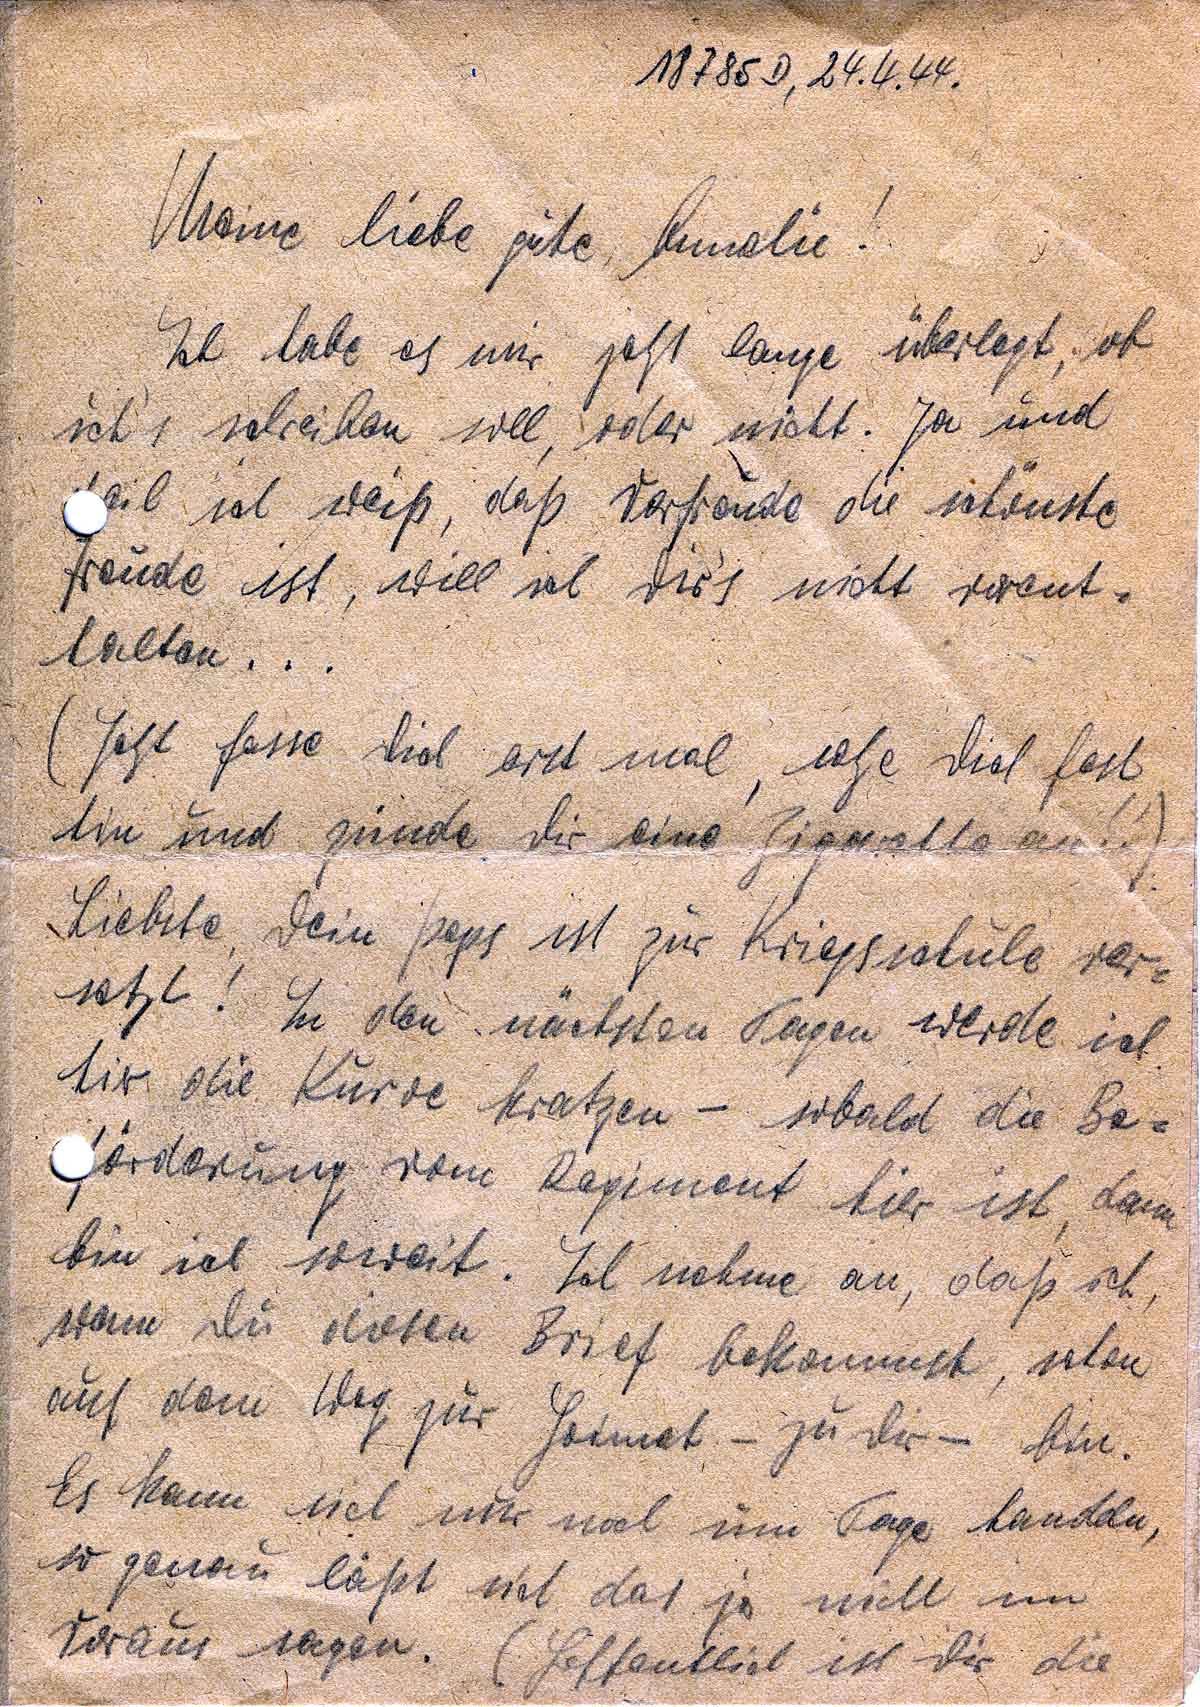 18785 D, 24.4.44.
Meine liebe gute, Annelie!
Ich habe es mir jetzt lange überlegt, ob
ich's schreiben soll, oder nicht. Ja und
weil ich weiß, daß Vorfreude die schönste
Freude ist, will ich Dir's nicht vorent-
halten...
(Jetzt fasse Dich erst mal, setze Dich fest
hin und zünde Dir eine Zigarette an!!)
Liebste, Dein Peps ist zur Kriegsschule ver-
setzt! In den nächsten Tagen werde ich
hier die Kurve kratzen – sobald die Be-
förderung vom Regiment hier ist, dann
bin ich soweit. Ich nehme an, daß ich,
wenn Du diesen Brief bekommst, schon
auf dem Weg zur Heimat – zu Dir – bin.
Es kann sich nur noch um Tage handeln,
so genau läßt sich das ja nicht im
Voraus sagen. (Hoffentlich ist Dir die